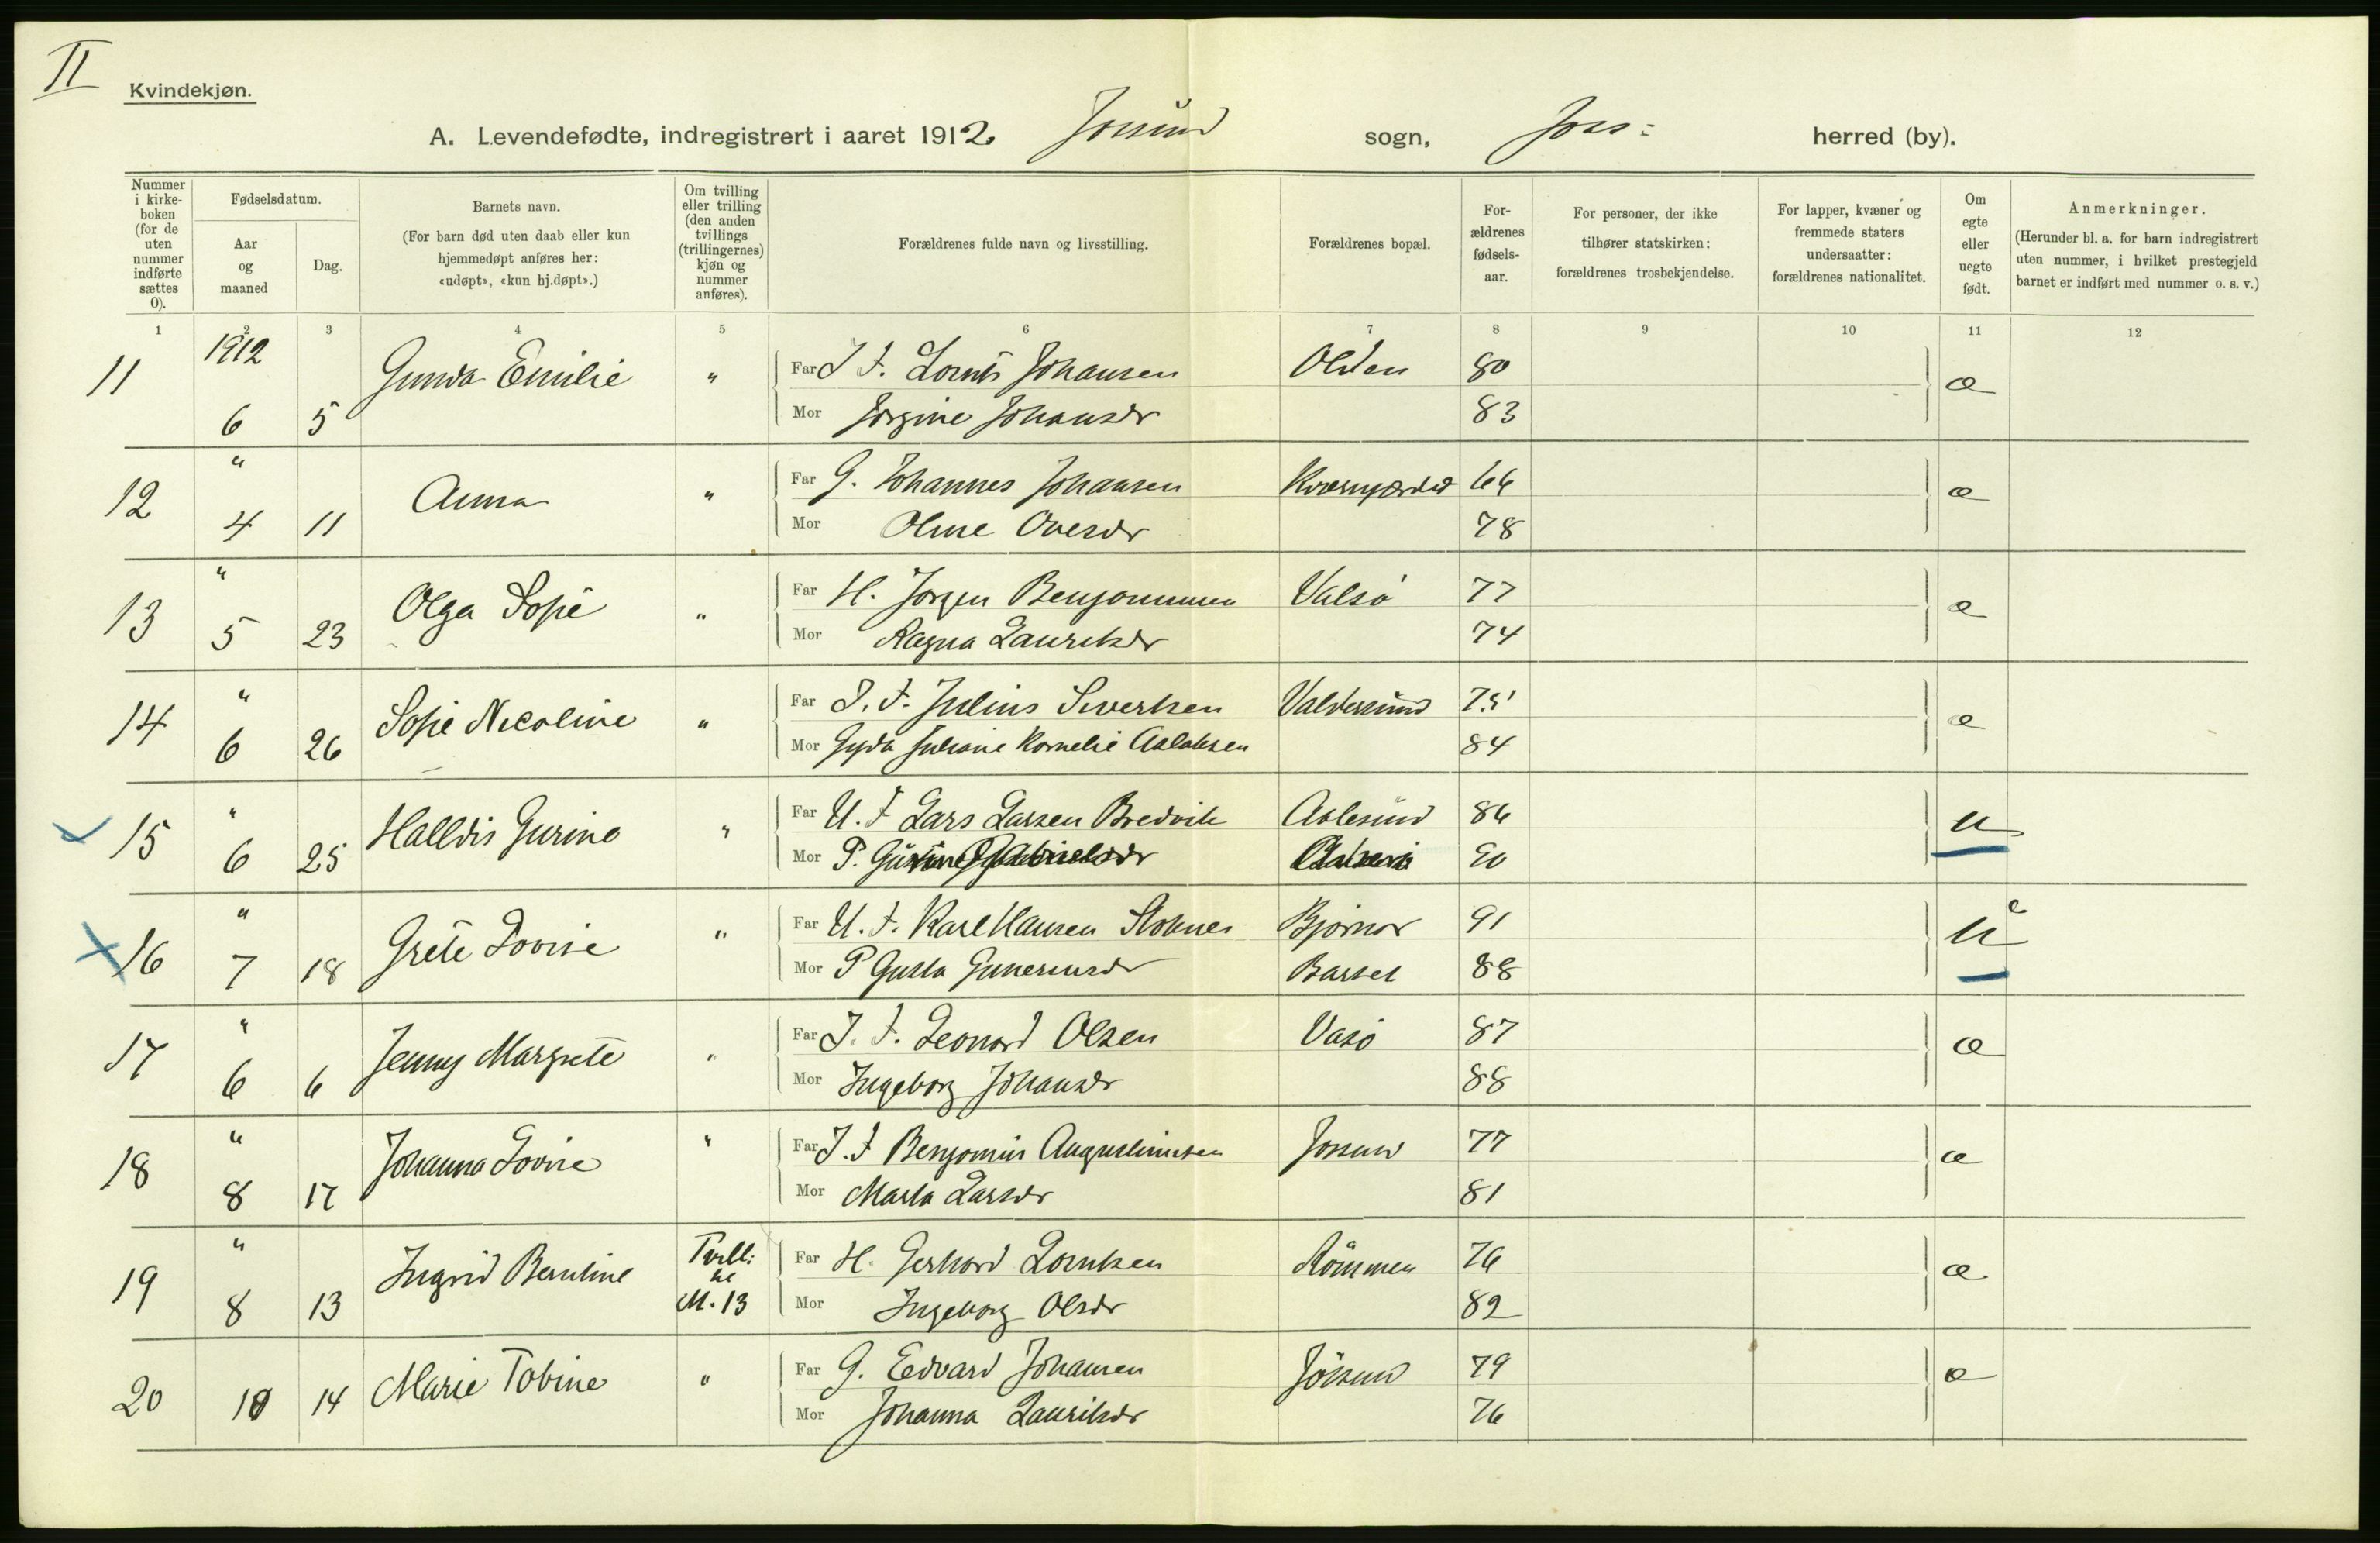 II
Kvindekjøn.
A. Levendefødte, indregistrert i aaret 1912. Jössund sogn, Jöss: herred (by).
Nummer i kirke-boken (for de uten nummer indførte sættes 0).
Fødselsdatum.
Aar og maaned
Dag.
Barnets navn.
(For barn død uten daab eller kun hjemmedøpt anføres her: «udøpt», «kun hj.døpt».)
Om tvilling eller trilling (den anden tvillings (trillingernes) kjøn og nummer anføres).
Forældrenes fulde navn og livsstilling.
Forældrenes bopæl.
For-ældrenes fødsels-aar.
For personer, der ikke tilhører statskirken: forældrenes trosbekjendelse.
For lapper, kvæner og fremmede staters undersaatter: forældrenes nationalitet.
Om egte eller uegte født.
Anmerkninger.
(Herunder bl. a. for barn indregistrert uten nummer, i hvilket prestegjeld barnet er indført med nummer o. s. v.)
1 2 3 4 5 6 7 8 9 10 11 12
1912
11 6 5 Gunda Emilie " Far J. F. Lornts Johansen Olden 80 e
Mor Jørgine Johansdr 83
12 " 4 11 Anna " Far G. Johannes Johansen 66 e
Mor Oline Ovesdr 78
13 " 5 23 Olga Sofie " Far H. Jørgen Benjaminsen Valsø 77 e
Mor Ragna Lauritsdr 74
14 " 6 26 Sofie Nicoline " Far J. F. Julius Sivertsen Valdersund 75 e
Mor Gyda Juliane Kornelie Aslaksen 84
15 " 6 25 Halldis Gurine " Far U. F. Lars Larsen Bredvik Aalesund 86 u
Mor P. Gurine Gabrielsdr 90
16 " 7 18 Grete Lovise " Far U. F. Karl Hansen Stoknes Bjørnør 91 u
Mor P Gusta Guneriusdr Barset 88
17 " 6 6 Jenny Margrete " Far J. F. Leonard Olsen Vasø 87 e
Mor Ingeborg Johansdr 88
18 " 8 17 Johanna Lovise " Far J. F Benjamin Augustinusen Jøssund 77 e
Mor Marta Larsdr 81
19 " 8 13 Ingrid Berntine Tvill: M. 13 Far H. Gerhard Lorntsen Römmen 76 e
Mor Ingeborg Olsdr 82
20 10 14 Marie Tobine " Far G. Edvard Johansen Jössund 79 e
Mor Johanna Lauritsdr 76